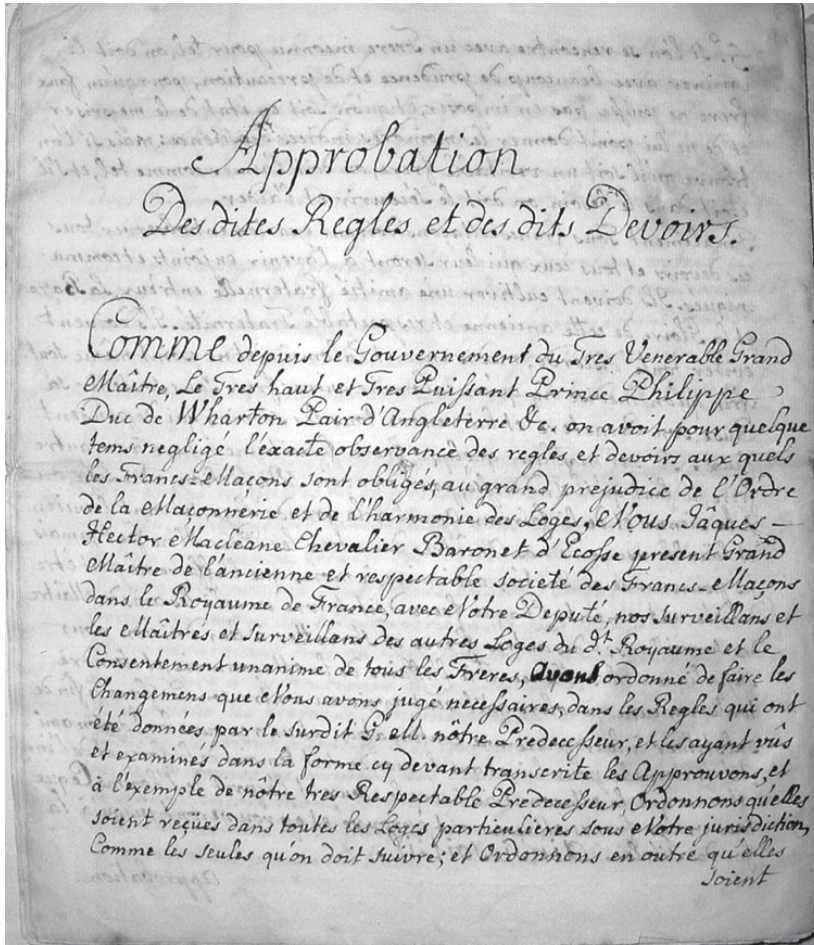 Approbation
Des dites Regles et des dits Devoirs.
Comme depuis le Gouvernement du Tres Venerable Grand
Maître, Le Tres haut et Tres Puissant Prince Philippe
Duc de Wharton Pair d'Angleterre &c. on avoit pour quelque
tems negligé l'exacte observance des regles et devoirs aux quels
les Francs-Maçons sont obligés, au grand prejudice de l'Ordre
de la Maçonnerie et de l'harmonie des Loges, Nous Jâques –
Hector Macleane Chevalier Baronet d'Ecosse present Grand
Maître de l'ancienne et respectable societé des Francs-Maçons
dans le Royaume de France, avec Notre Deputé, nos surveillans et
les Maîtres et surveillans des autres Loges du d.t Royaume et le
Consentement unanime de tous les Freres, avons ordonné de faire les
Changemens que Nous avons jugé necessaires, dans les Regles qui ont
été données par le surdit G. M. nôtre Predecesseur, et les ayant vûs
et examinés dans la forme cy devant transcrite les Approuvons, et
à l'exemple de nôtre tres Respectable Predecesseur, Ordonnons qu'elles
soient reçües dans toutes les Loges particulieres sous Notre jurisdiction,
Comme les seules qu'on doit suivre; et Ordonnons en outre qu'elles
soient